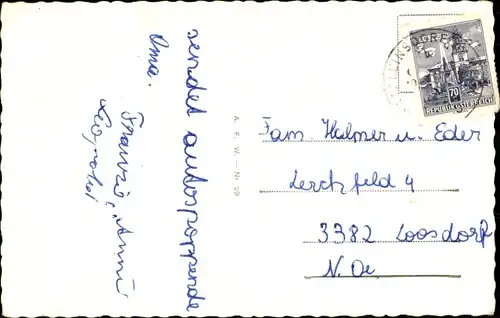 sendet autospoppende
Oma.
Franzi, Anni
A. F. W. — Nr. 59
70
REPUBLIK ÖSTERREICH
Fam. Halmer u. Eder
Lerchfeld 4
3382 Loosdorf
N. Oe